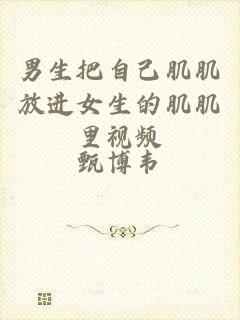 男生把自己肌肌
放进女生的肌肌
里视频
甄博韦